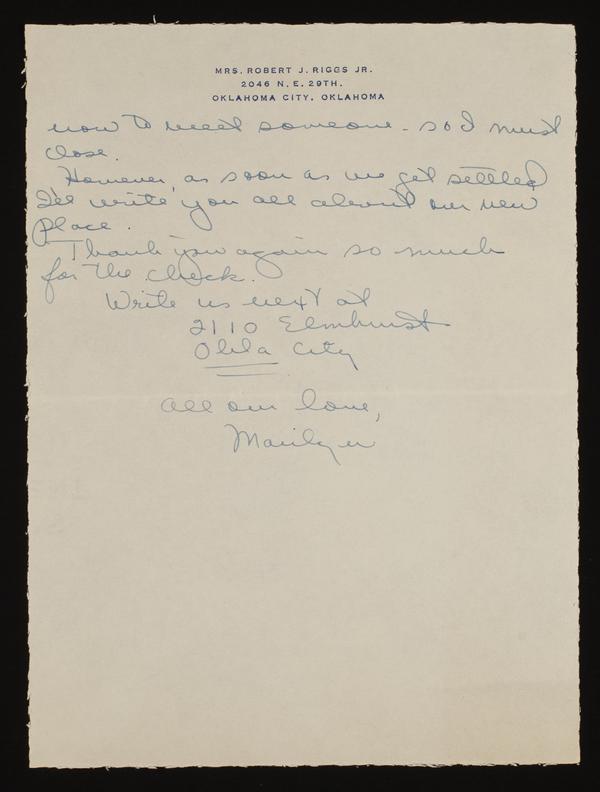 MRS. ROBERT J. RIGGS JR.
2046 N. E. 29TH.
OKLAHOMA CITY, OKLAHOMA
now to meet someone - so I must
close.
However, as soon as we get settled
I'll write you all about our new
place.
Thank you again so much
for the check.
Write us next at
2110 Elmhurst
Okla City
All our love,
Marilyn